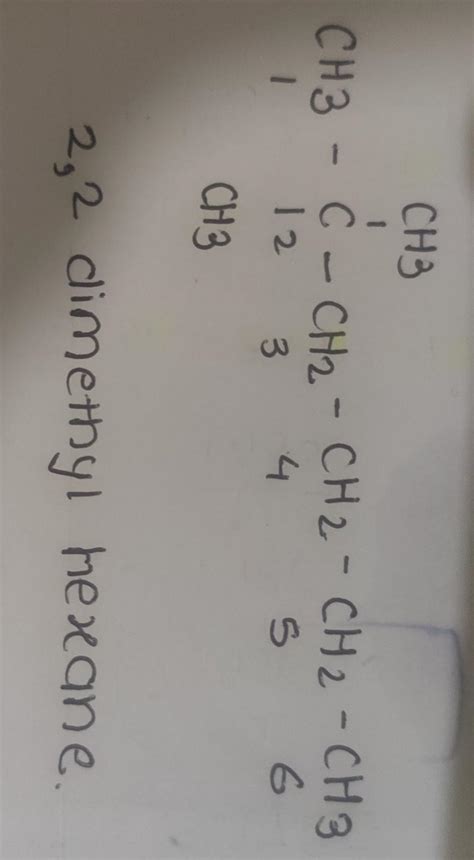 CH3
CH3 - C - CH2 - CH2 - CH2 - CH3
1 2 3 4 5 6
CH3
2,2 dimethyl hexane.